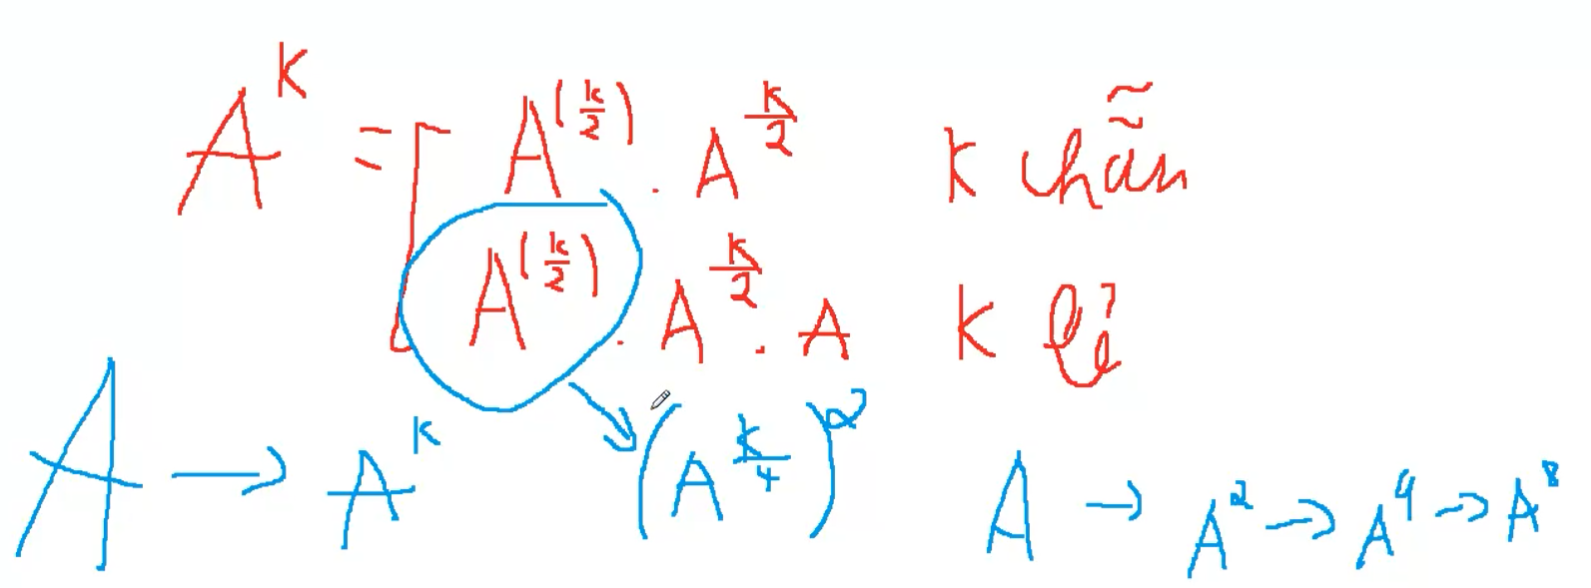 A^K = [ A^(k/2) . A^(k/2) K chẵn
A^(k/2) . A^(k/2) . A K lẻ
A → A^K (A^(k/4))^2 A → A^2 → A^4 → A^8